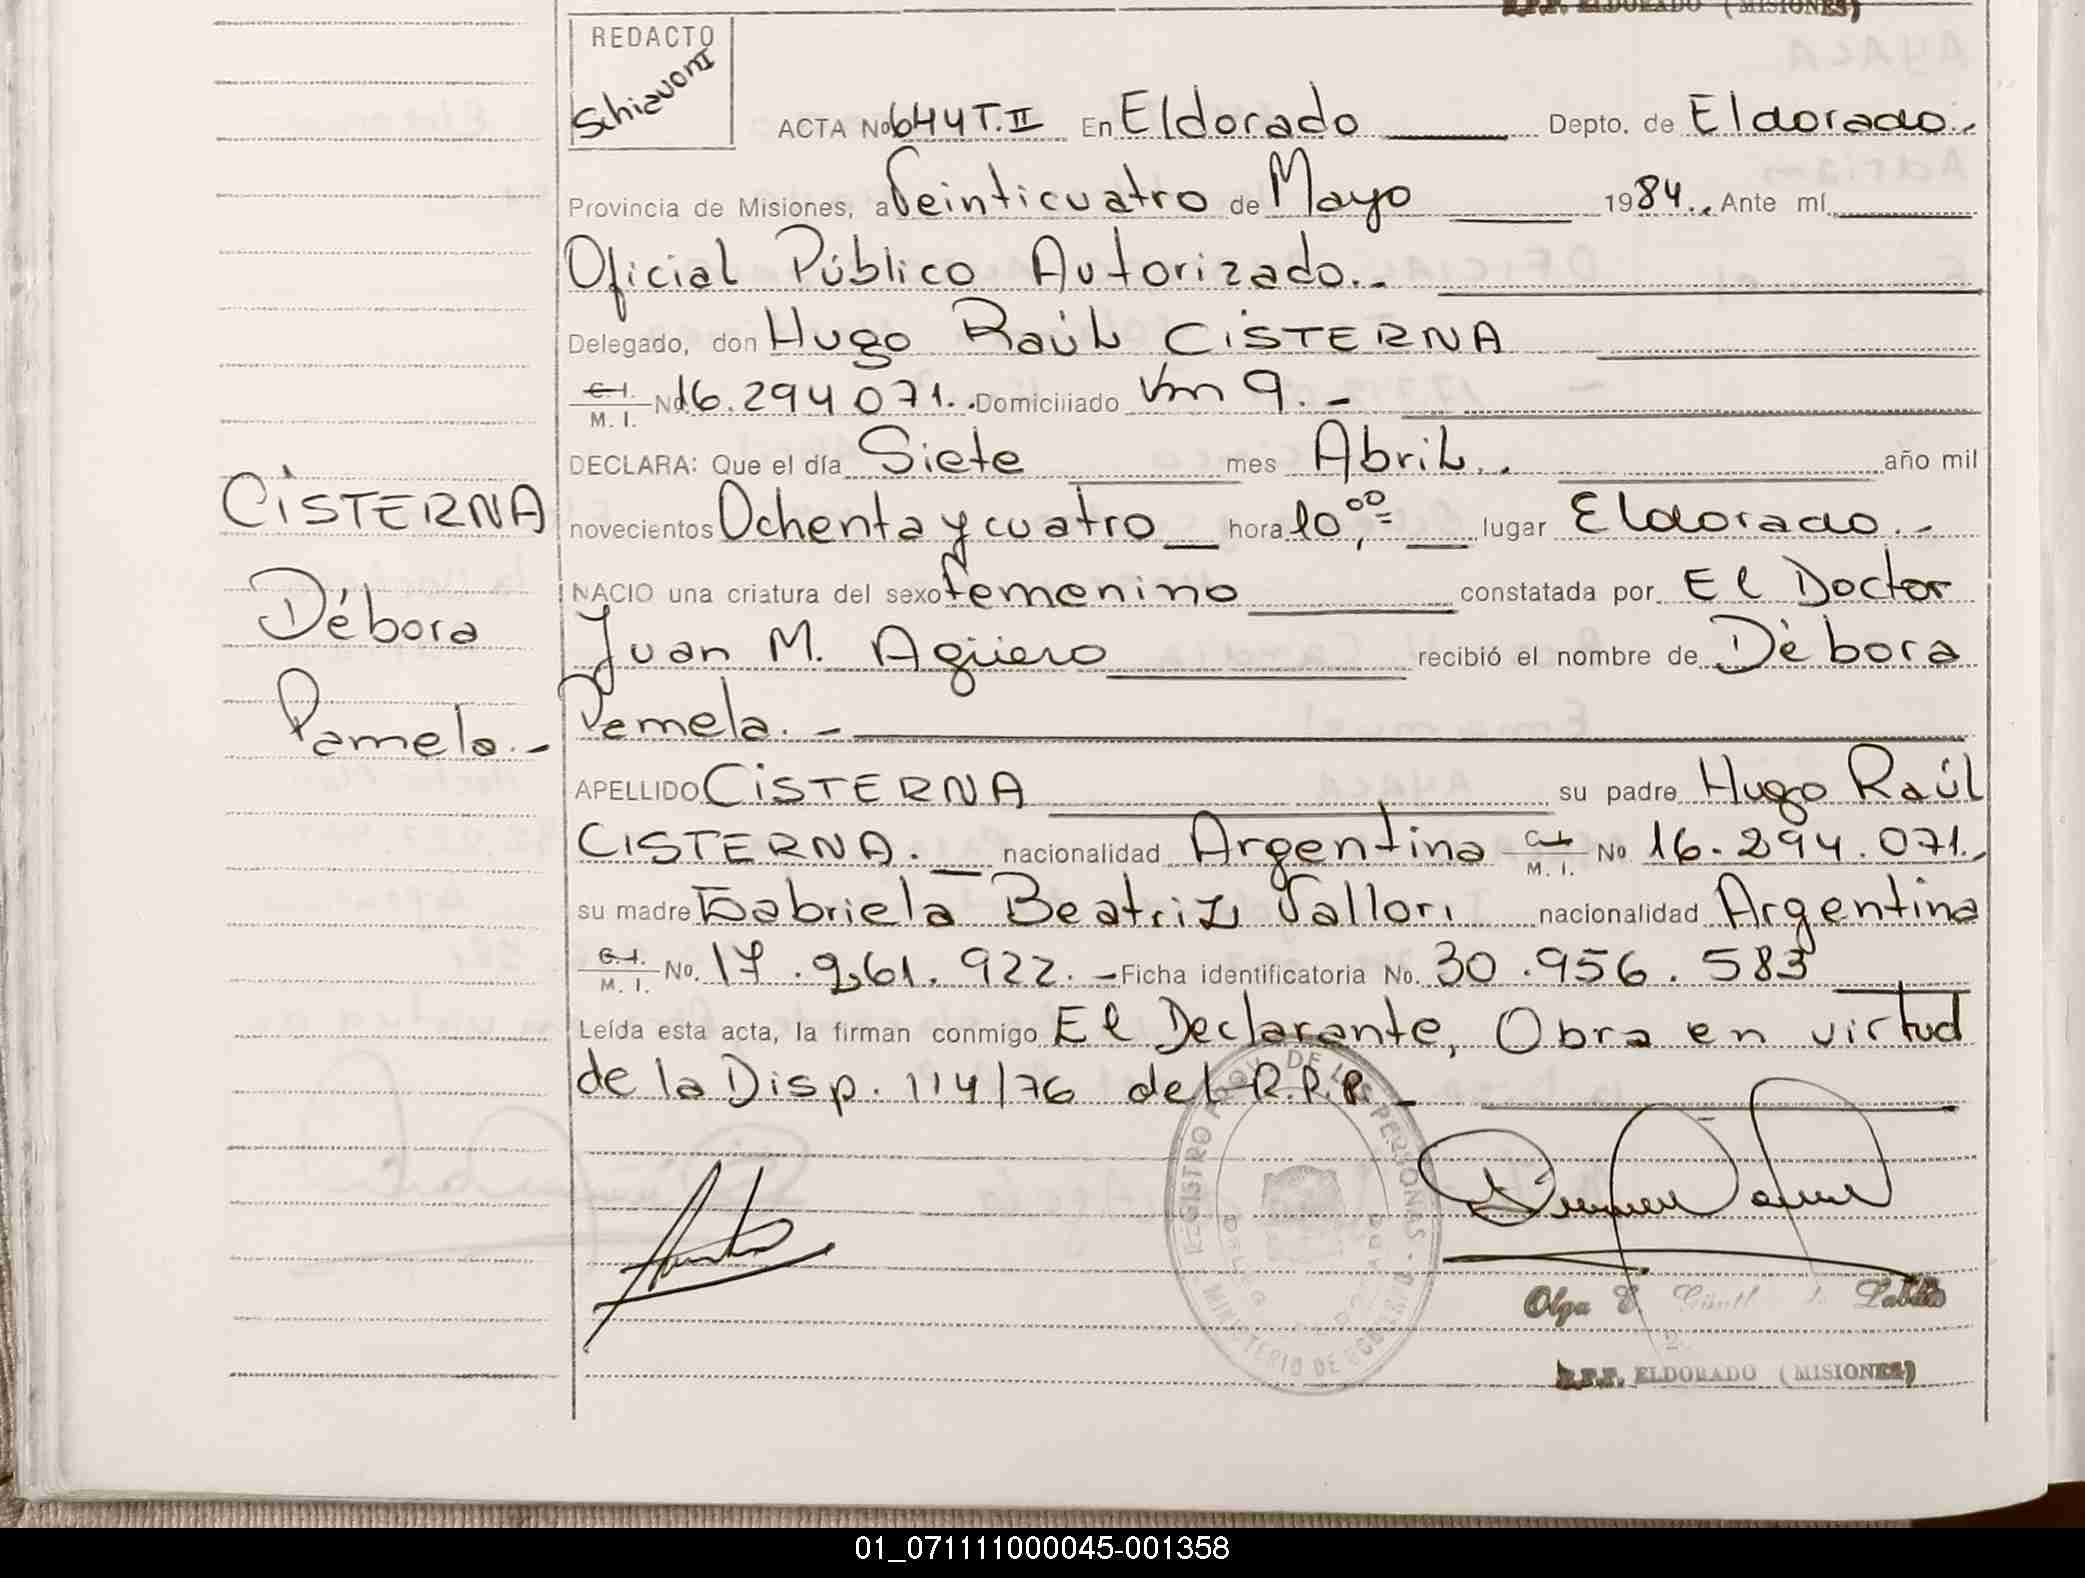 R.P.P. ELDORADO (MISIONES)
REDACTO
Schiavoni
ACTA No 644 T.II En Eldorado Depto. de Eldorado.-
Provincia de Misiones, a Veinticuatro de Mayo 1984.. Ante mí
Oficial Público Autorizado.-
Delegado, don Hugo Raúl CISTERNA
C.I. M. I. No. 16.294.071.. Domiciliado Km 9.-
DECLARA: Que el día Siete mes Abril.. año mil
CISTERNA
novecientos Ochenta y cuatro hora 10,00= lugar Eldorado.-
Débora
NACIO una criatura del sexo femenino constatada por El Doctor
Juan M. Agüero recibió el nombre de Débora
Pamela.-
Pamela.-
APELLIDO CISTERNA su padre Hugo Raúl
CISTERNA. nacionalidad Argentina C.I. M. I. No 16.294.071.,
su madre Gabriela Beatriz Vallori nacionalidad Argentina
C.I. M. I. No. 17.961.922.- Ficha identificatoria No. 30.956.583
Leída esta acta, la firman conmigo El Declarante, Obra en virtud
de la Disp. 114/76 del R.P.P.-
REGISTRO PROV. DE LAS PERSONAS
MINISTERIO DE GOBIERNO
Olga E.
R.P.P. ELDORADO (MISIONES)
01_071111000045-001358